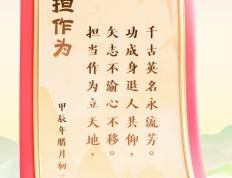 担作为
担当作为立天地，
矢志不渝心不移。
功成身退人共仰，
千古英名永流芳。
甲辰年腊月初